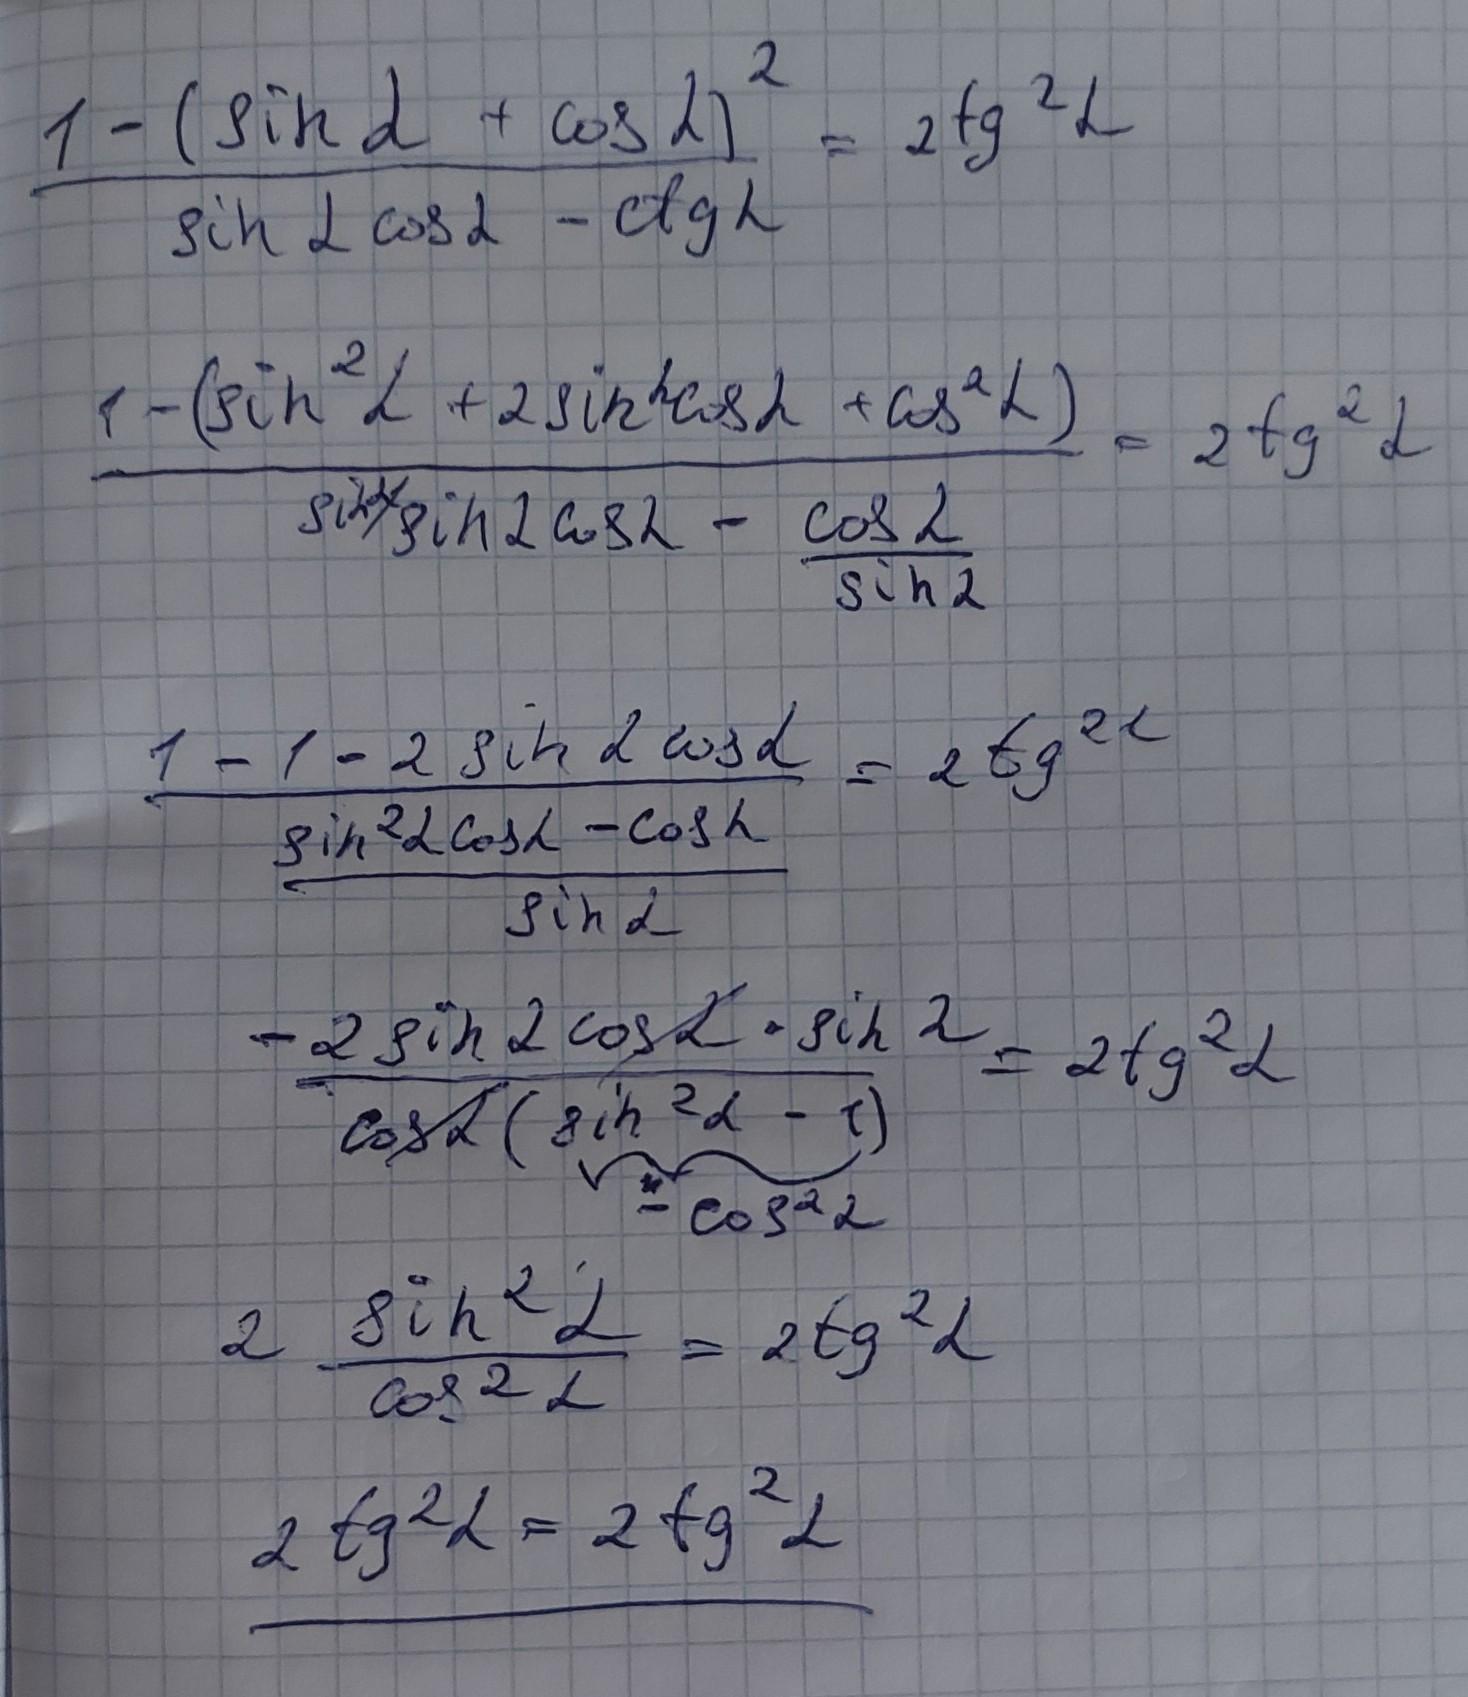 1 - (sin α + cos α)² / sin α cos α - ctg α = 2 tg² α
1 - (sin² α + 2 sin α cos α + cos² α) / sin α cos α - cos α / sin α = 2 tg² α
1 - 1 - 2 sin α cos α / sin² α cos α - cos α / sin α = 2 tg² α
- 2 sin α cos α · sin α / cos α (sin² α - 1) = 2 tg² α
- cos² α
2 sin² α / cos² α = 2 tg² α
2 tg² α = 2 tg² α